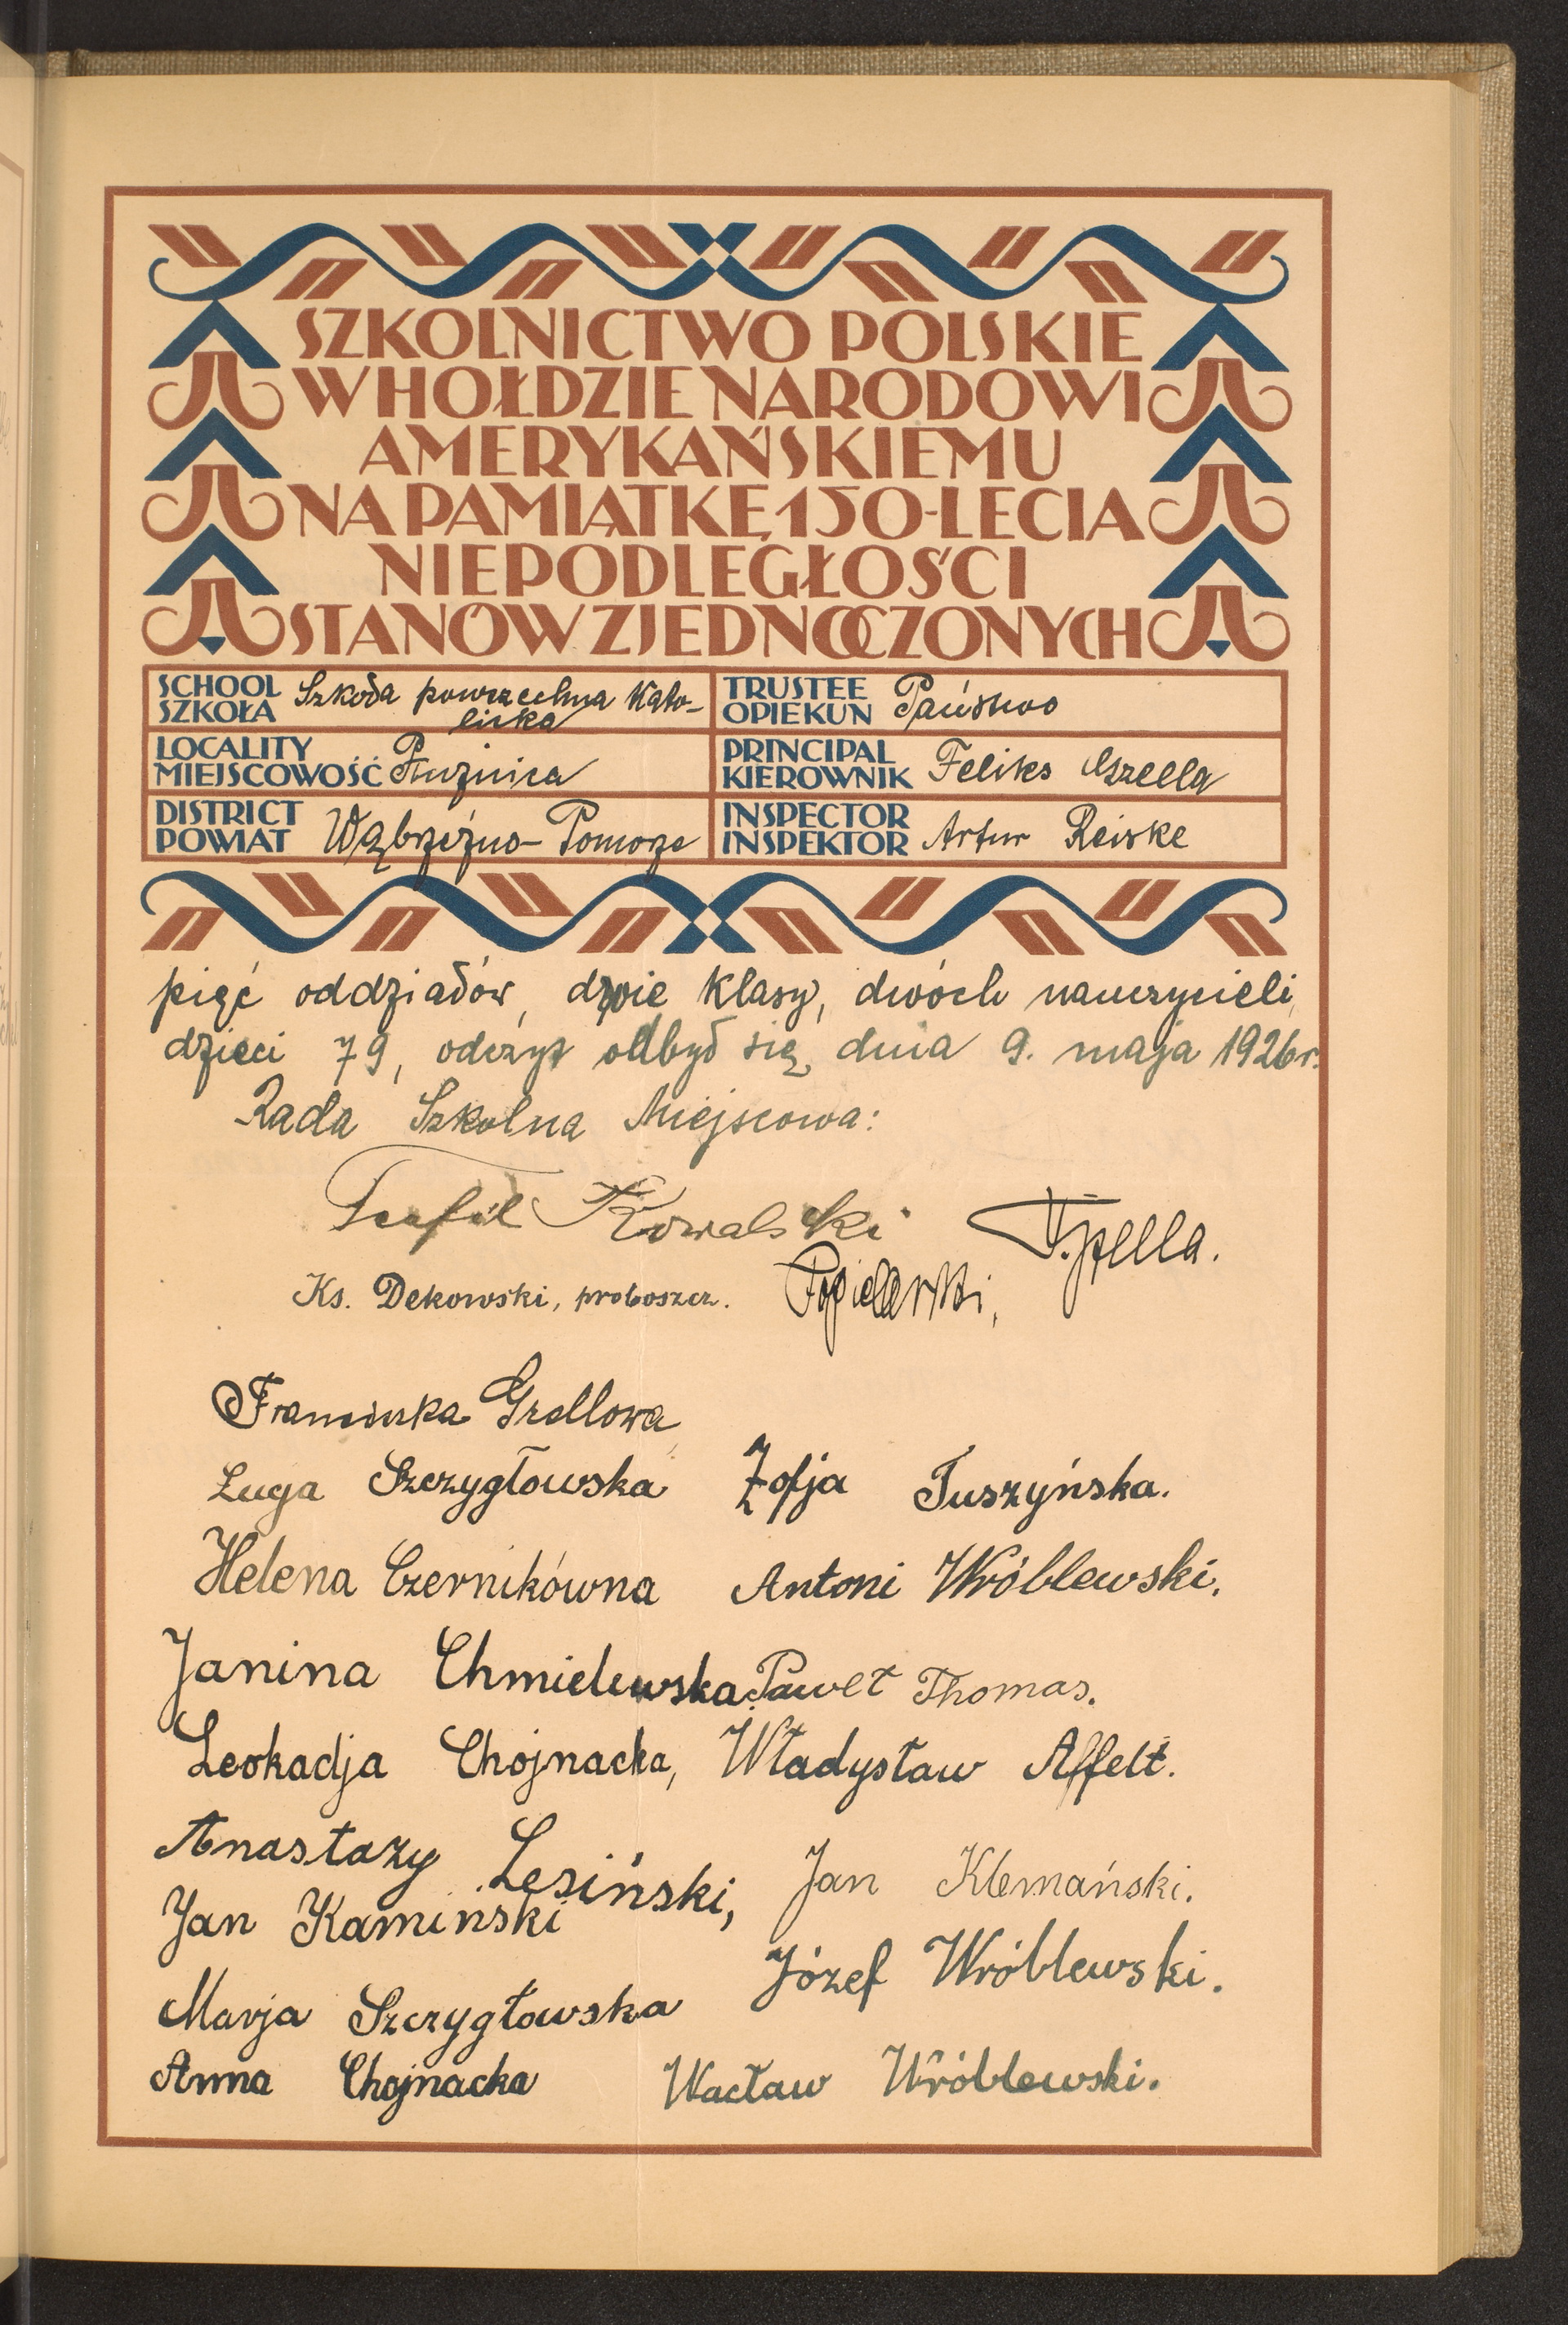 SZKOLNICTWO POLSKIE
W HOŁDZIE NARODOWI
AMERYKAŃSKIEMU
NA PAMIĄTKĘ 150-LECIA
NIEPODLEGŁOŚCI
STANÓW ZJEDNOCZONYCH
SCHOOL
SZKOŁA
Szkoła powszechna Kato-
licka
TRUSTEE
OPIEKUN
Państwo
LOCALITY
MIEJSCOWOŚĆ
Płużnica
PRINCIPAL
KIEROWNIK
Feliks
DISTRICT
POWIAT
Wąbrzeźno - Pomorze
INSPECTOR
INSPEKTOR
Artur Reiske
pięć oddziałów, dwie klasy, dwóch nauczycieli,
dzieci 79, odczyt odbył się dnia 9. maja 1926 r.
Rada Szkolna Miejscowa:
Teofil Kowalski
Ks. Dekowski, proboszcz.
Franciszka Grellowa
Szczygłowska Zofja Tuszyńska.
Helena Czernikówna Antoni Wróblewski.
Janina Chmielewska. Paweł Thomas.
Leokadja Chojnacka, Władysław Affelt.
Anastazy Lesiński, Jan Klemański.
Jan Kamiński
Józef Wróblewski.
Marja Szczygłowska
Anna Chojnacka Wacław Wróblewski.